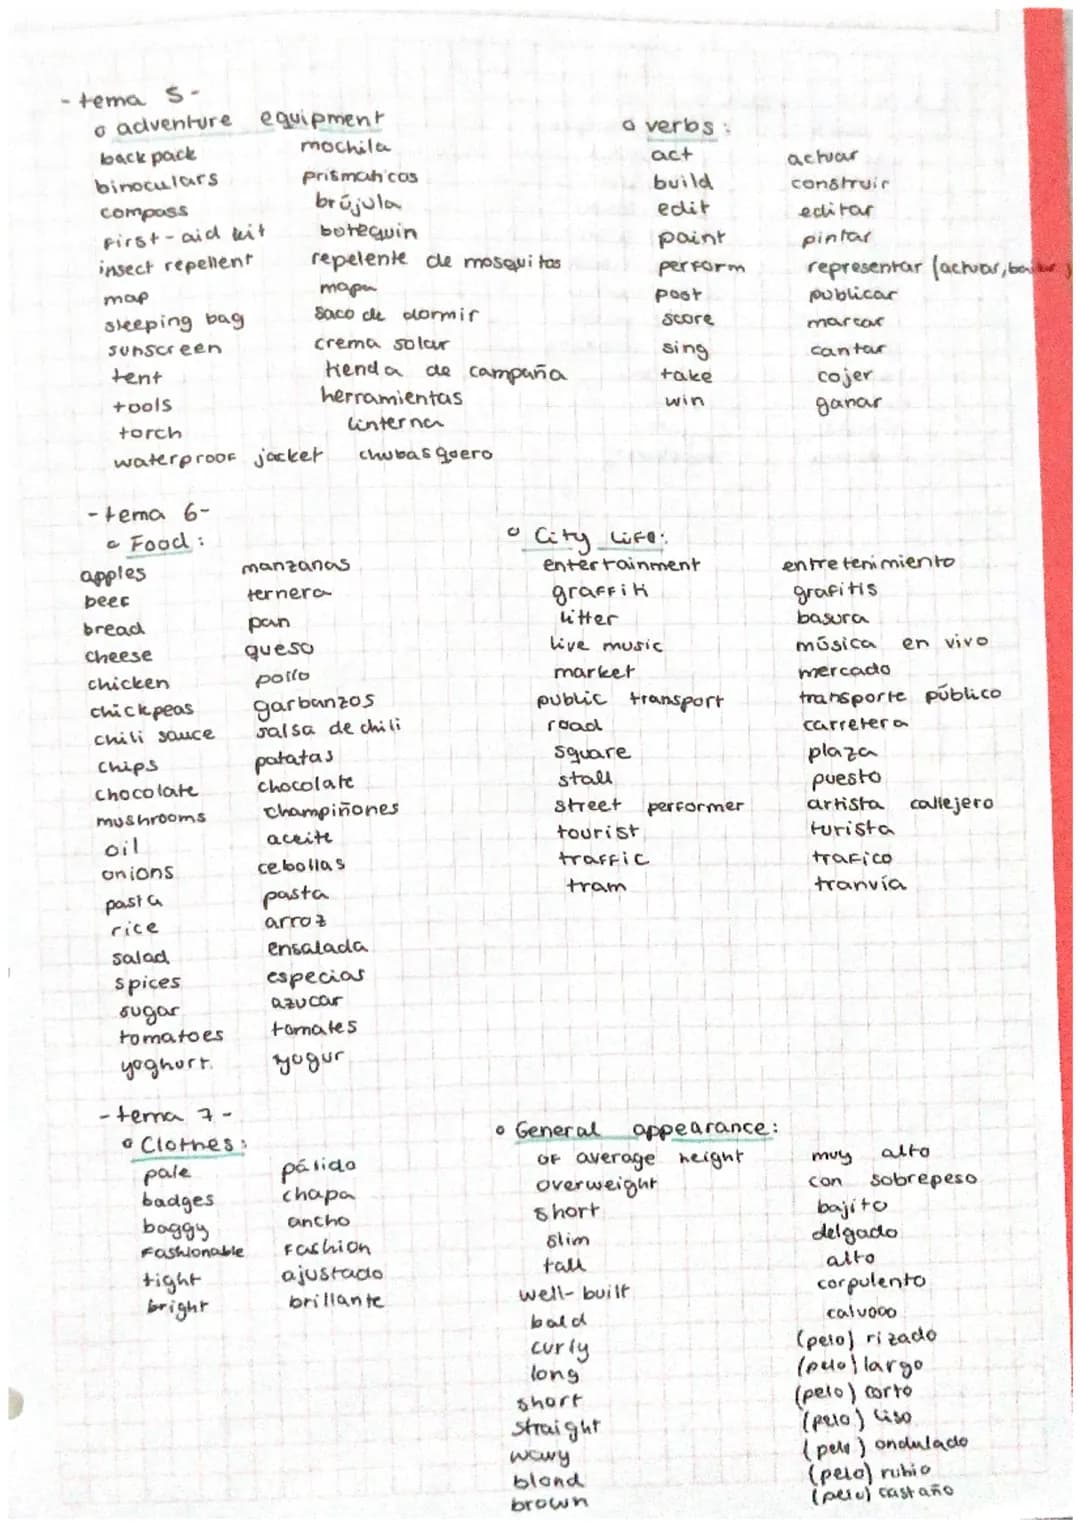 - tema 5 -
o adventure equipment
back pack mochila
binoculars prismaticos
compass brújula
first-aid kit botequin
insect repellent repelente de mosquitos
map mapa
sleeping bag saco de dormir
sunscreen crema solar
tent tienda de campaña
tools herramientas
torch linterna
waterproof jacket chubasquero
o verbs:
act actuar
build construir
edit editar
paint pintar
perform representar (actuar, bailar)
post publicar
score marcar
sing cantar
take cojer
win ganar
- tema 6 -
o Food:
apples manzanas
beef ternera
bread pan
cheese queso
chicken pollo
chickpeas garbanzos
chili sauce salsa de chili
chips patatas
chocolate chocolate
mushrooms champiñones
oil aceite
onions cebollas
pasta pasta
rice arroz
salad ensalada
spices especias
sugar azucar
tomatoes tomates
yoghurt yogur
o City life:
entertainment entretenimiento
graffiti grafitis
litter basura
live music música en vivo
market mercado
public transport transporte público
road carretera
square plaza
stall puesto
street performer artista callejero
tourist turista
traffic trafico
tram tranvía
- tema 7 -
o Clothes:
pale pálido
badges chapa
baggy ancho
fashionable fashion
tight ajustado
bright brillante
o General appearance:
of average height muy alto
overweight con sobrepeso
short bajito
slim delgado
tall alto
well-built corpulento
bald calvooo
curly (pelo) rizado
long (pelo) largo
short (pelo) corto
straight (pelo) liso
wavy (pelo) ondulado
blond (pelo) rubio
brown (pelo) castaño